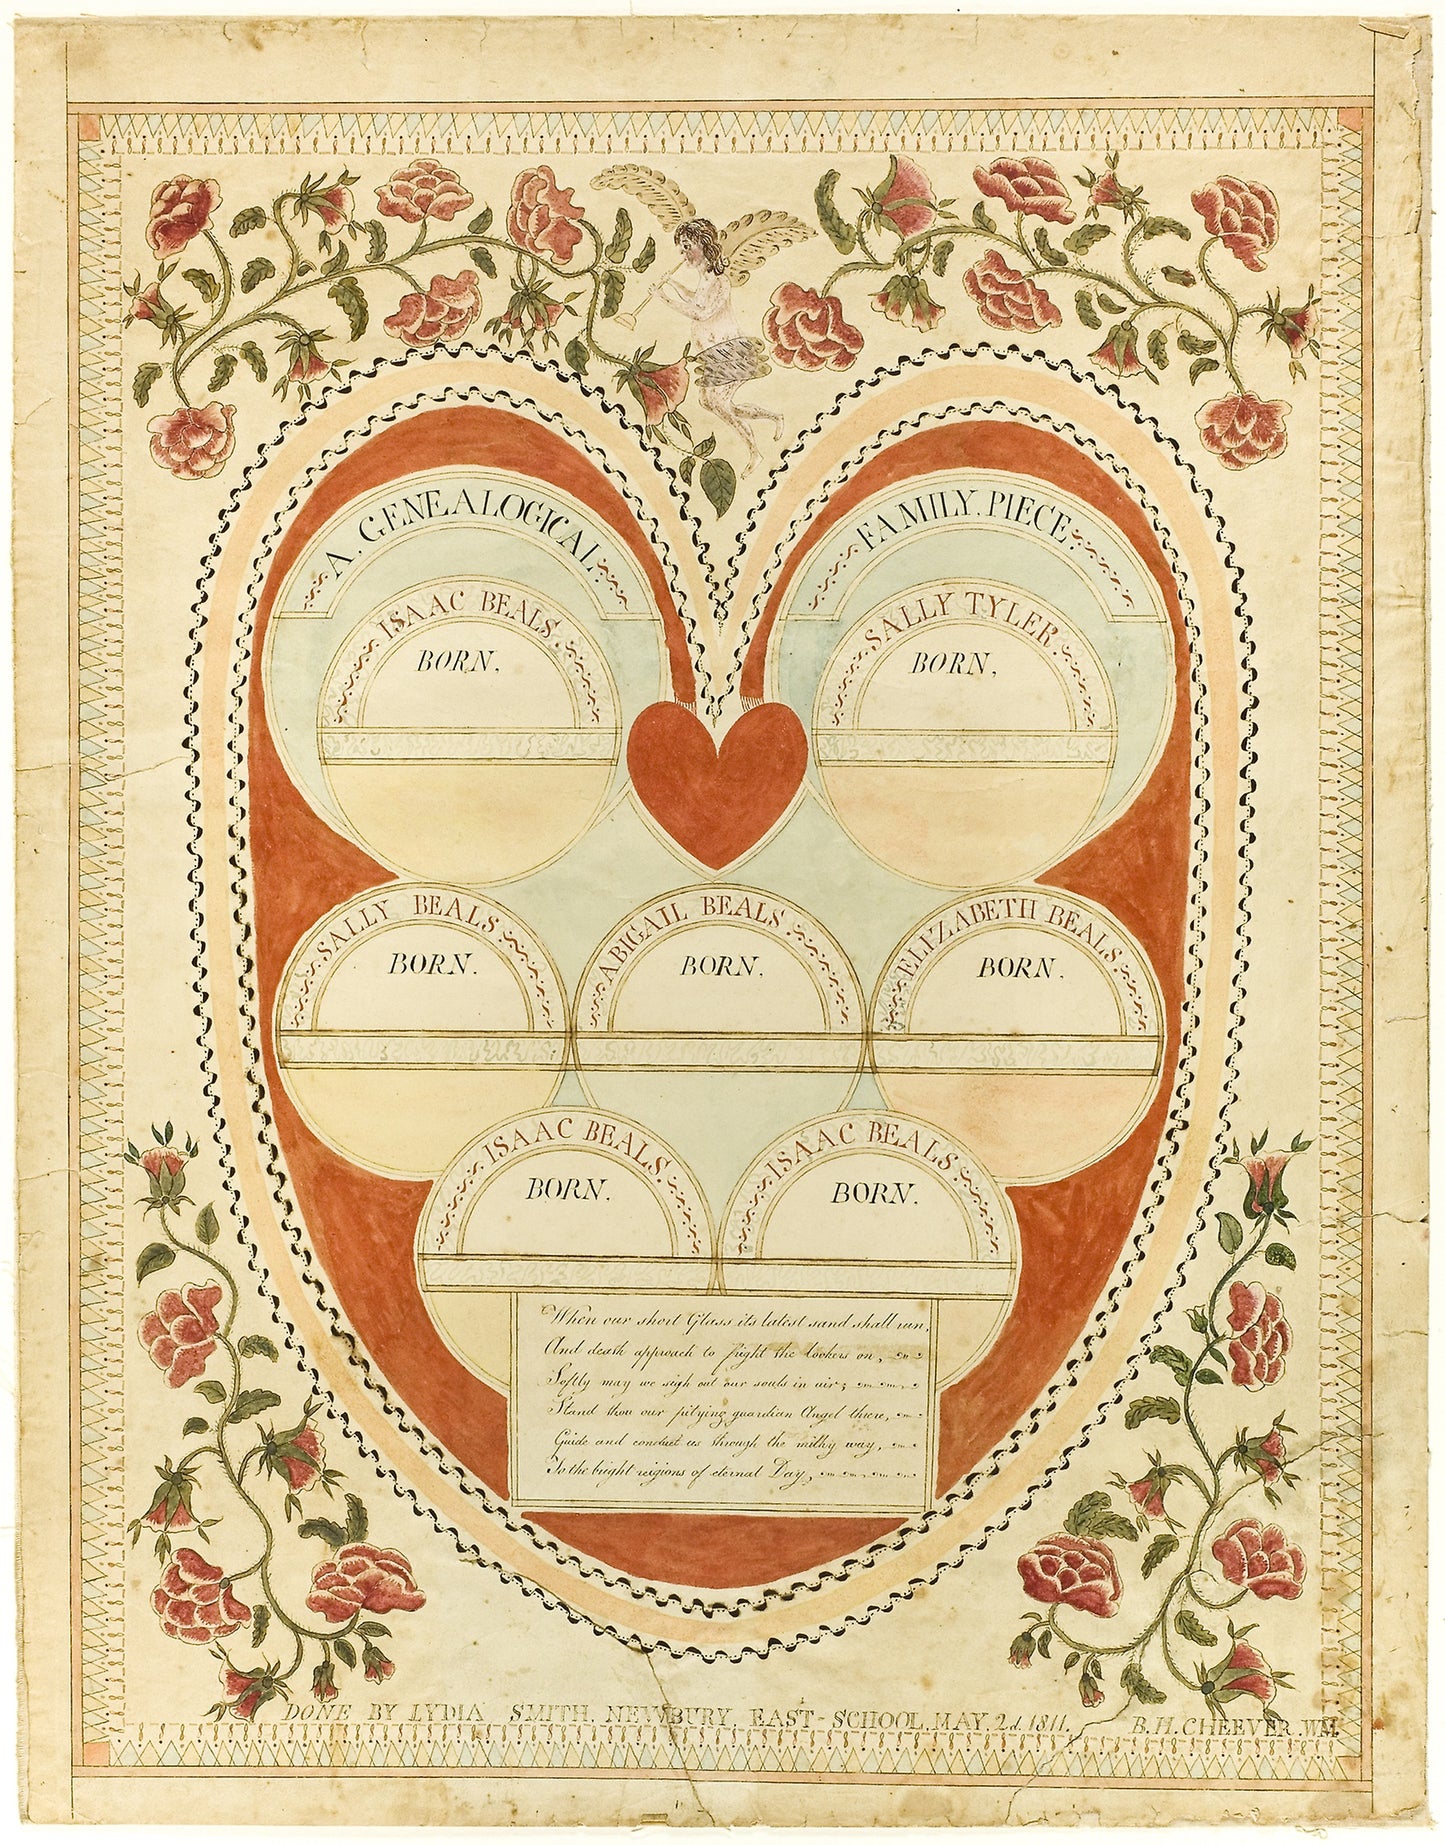 A. GENEALOGICAL.
FAMILY. PIECE.
ISAAC BEALS.
BORN.
SALLY TYLER.
BORN.
SALLY BEALS
BORN.
ABIGAIL BEALS
BORN.
ELIZABETH BEALS.
BORN.
ISAAC BEALS.
BORN.
ISAAC BEALS.
BORN.
When our short Glass its latest sand shall run,
And death approach to fright the lookers on,
Softly may we sigh out our souls in air;
Stand thou our pitying guardian Angel there,
Guide and conduct us through the milky way,
To the bright reigions of eternal Day,
DONE BY LYDIA SMITH. NEWBURY. EAST-SCHOOL, MAY. 2d. 1811.
B. H. CHEEVER.